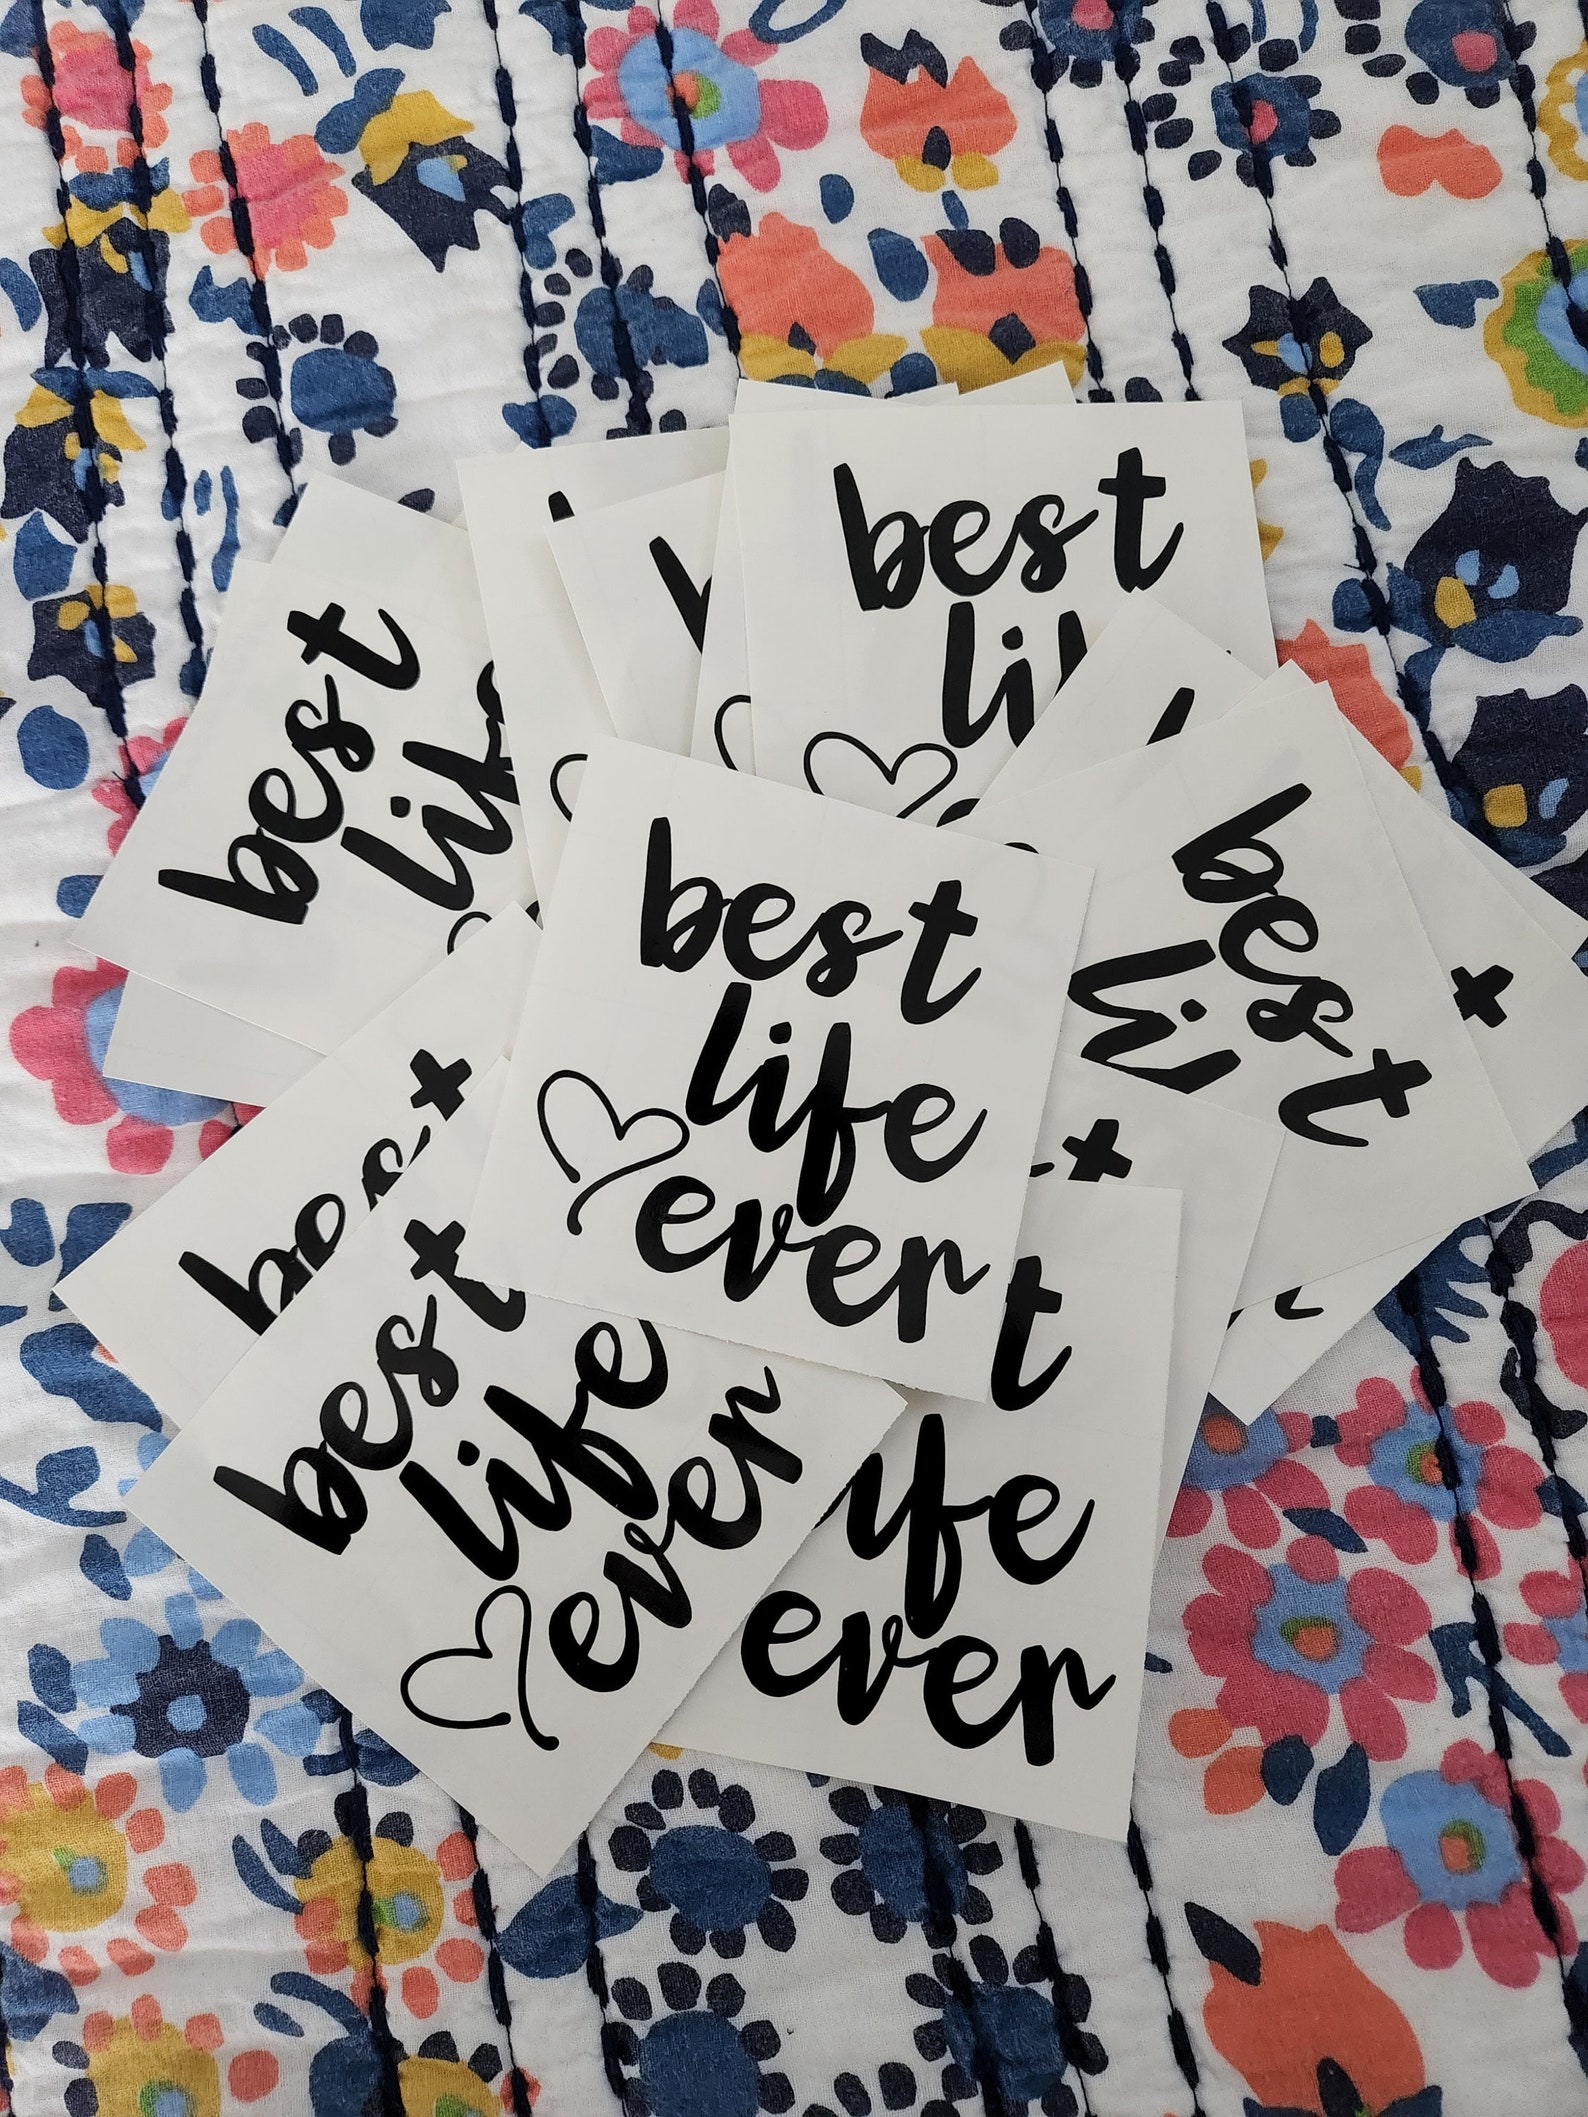 best
li
best
lif
best
li
best
life
ever
best
best
life
ever
t
ife
ever